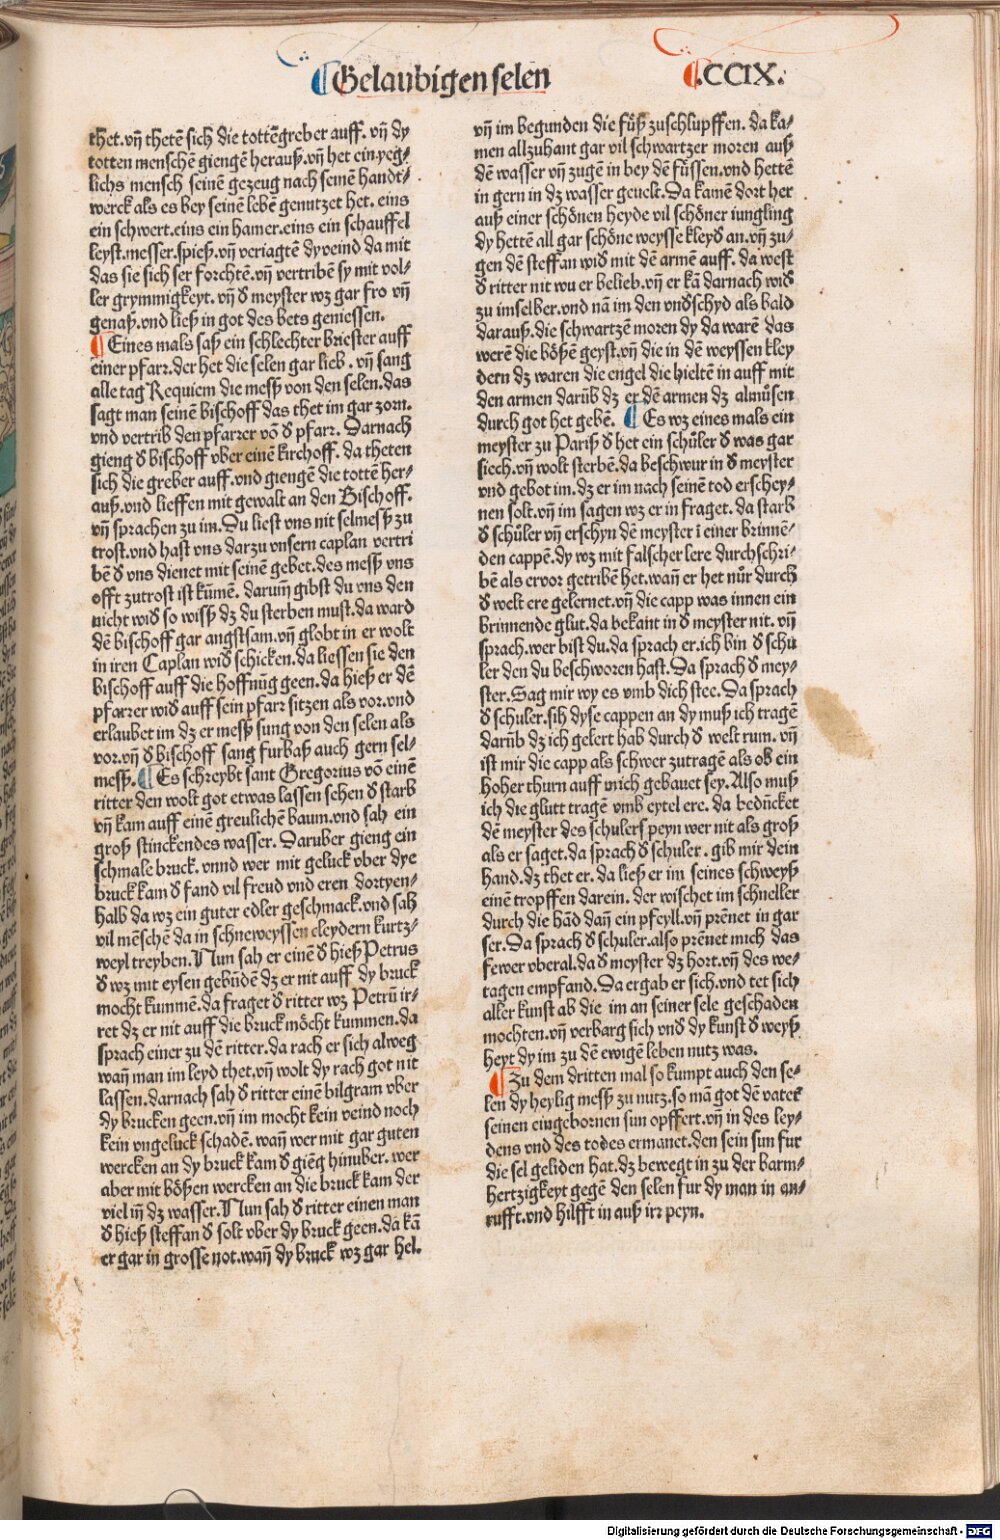 ¶ Gelaubigen selen
¶ .CCIX.
thet.vñ thetē sich die tottēgreber auff. vñ dy
totten menschē giengē herauß.vñ het ein yeg⸗
lichs mensch seinē gezeug nach seinē handt⸗
werck als es bey seinē lebē genutzet het. eins
ein schwert.eins ein hamer.eins ein schauffel
leyst.messer.spieß.vñ veriagtē dy veind da mit
das sie sich ser forchtē.vñ vertribē sy mit vol⸗
ler grymmigkeyt. vñ d̕ meyster wz gar fro vñ
genaß.vnd ließ in got des bets geniessen.
¶ Eines mals saß ein schlechter briester auff
einer pfarr.der het die selen gar lieb. vñ sang
alle tag Requiem die meß von den selen.das
sagt man seinē bischoff das thet im gar zorn.
vnd vertrib den pfarrer vō d̕ pfarr. Darnach
gieng d̕ bischoff vber einē kirchoff. da theten
sich die greber auff.vnd giengē die tottē her⸗
auß.vnd lieffen mit gewalt an den Bischoff.
vñ sprachen zu im.Du liest vns nit selmeß zu
trost.vnd hast vns darzu vnsern caplan vertri
bē d̕ vns dienet mit seinē gebet.des meß vns
offt zutrost ist kūmē. darum̄ gibst du vns den
nicht wid̕ so wiß dz du sterben must.da ward
dē bischoff gar angstsam.vñ globt in er wolt
in iren Caplan wid̕ schicken.da liessen sie den
bischoff auff die hoffnūg geen.da hieß er dē
pfarrer wid̕ auff sein pfarr sitzen als vor.vnd
erlaubet im dz er meß sung von den selen als
vor.vñ d̕ bischoff sang furbaß auch gern sel⸗
meß. ¶ Es schreybt sant Gregorius vō einē
ritter den wolt got etwas lassen sehen d̕ starb
vñ kam auff einē greulichen baum.vnd sah ein
groß stinckendes wasser. Daruber gieng ein
schmale bruck. vnnd wer mit geluck vber dye
bruck kam d̕ fand vil freud vnd eren dort yen⸗
halb da wz ein guter edler geschmack.vnd sah
vil mēschē da in schneweyssen cleydern kurtz⸗
weyl treyben.Nun sah er einē d̕ hieß Petrus
d̕ wz mit eysen gebūdē dz er nit auff dy bruck
mocht kummē.da fraget d̕ ritter wz Petrū ir⸗
ret dz er nit auff die bruck möcht kummen.da
sprach einer zu dē ritter.da rach er sich alweg
wañ man im leyd thet.vñ wolt dy rach got nit
lassen.darnach sah d̕ ritter einē bilgram vber
dy brucken geen.vñ im mocht kein veind noch
kein vngeluck schadē.wañ wer mit gar guten
wercken an dy bruck kam d̕ giēg hinuber. wer
aber mit bößen wercken an die bruck kam der
viel iñ dz wasser.Nun sah d̕ ritter einen man
d̕ hieß steffan d̕ solt vber dy bruck geen.da kā
er gar in grosse not.wañ dy bruck wz gar hel.
vñ im begunden die füß zuschlupffen. da ka⸗
men allzuhant gar vil schwartzer moren auß
dē wasser vñ zugē in bey dē füssen.vnd hettē
in gern in dz wasser geuelt.Da kamē dort her
auß einer schönen heyde vil schöner iungling
dy hettē all gar schöne weysse kleyd an.vñ zu⸗
gen dē steffan wid̕ mit dē armē auff. da west
d̕ ritter nit wu er belieb.vñ er kā darnach wid̕
zu im selber.vnd nā im den vnd̕schyd als bald
darauß.die schwartzē moren dy da warē das
werē die bößē geyst.vñ die in dē weyssen kley
dern dz waren die engel die hieltē in auff mit
den armen darūb dz er dē armen dz almůsen
durch got het gebē. ¶ Es wz eines mals ein
meyster zu Pariß d̕ het ein schůler d̕ was gar
siech.vñ wolt sterbē.da beschwur in d̕ meyster
vnd gebot im.dz er im nach seinē tod erschey⸗
nen solt.vñ im sagen wz er in fraget. da starb
d̕ schůler vñ erschyn dē meyster ī einer brinnē⸗
den cappē.dy wz mit falscher lere durchschri⸗
bē als er vor getribē het.wañ er het nůr durch
d̕ welt ere gelernet.vñ die capp was innen ein
brinnende glut.da bekant in d̕ meyster nit. vñ
sprach.wer bist du.da sprach er.ich bin d̕ schu
ler den du beschworen hast.Da sprach d̕ mey⸗
ster.Sag mir wy es vmb dich stee.Da sprach
d̕ schuler.sih dyse cappen an dy muß ich tragē
darūb dz ich gelert hab durch d̕ welt rum. vñ
ist mir die capp als schwer zutragē als ob ein
hoher thurn auff mich gebauet sey.Also muß
ich die glutt tragē vmb eytel ere. da bedūcket
dē meyster des schulers peyn wer nit als groß
als er saget.da sprach d̕ schuler. gib mir dein
hand.dz thet er. da ließ er im seines schweyß
einē tropffen darein. der wischet im schneller
durch die hād dañ ein pfeyll.vñ prēnet in gar
ser.Da sprach d̕ schuler.also prēnet mich das
fewer vberal.da d̕ meyster dz hort.vñ des we⸗
tagen empfand. Da ergab er sich.vnd tet sich
aller kunst ab die im an seiner sele geschaden
mochten.vñ verbarg sich vnd̕ dy kunst d̕ weyß
heyt dy im zu dē ewigē leben nutz was.
¶ Zu dem dritten mal so kumpt auch den se⸗
len dy heylig meß zu nutz.so mā got dē vater
seinen eingebornen sun opffert.vñ in des ley⸗
dens vnd des todes ermanet.den sein sun fur
die sel geliden hat.dz bewegt in zu der barm⸗
hertzigkeyt gegē den selen fur dy man in an⸗
rufft.vnd hilfft in auß irr peyn.
Digitalisierung gefördert durch die Deutsche Forschungsgemeinschaft - DFG